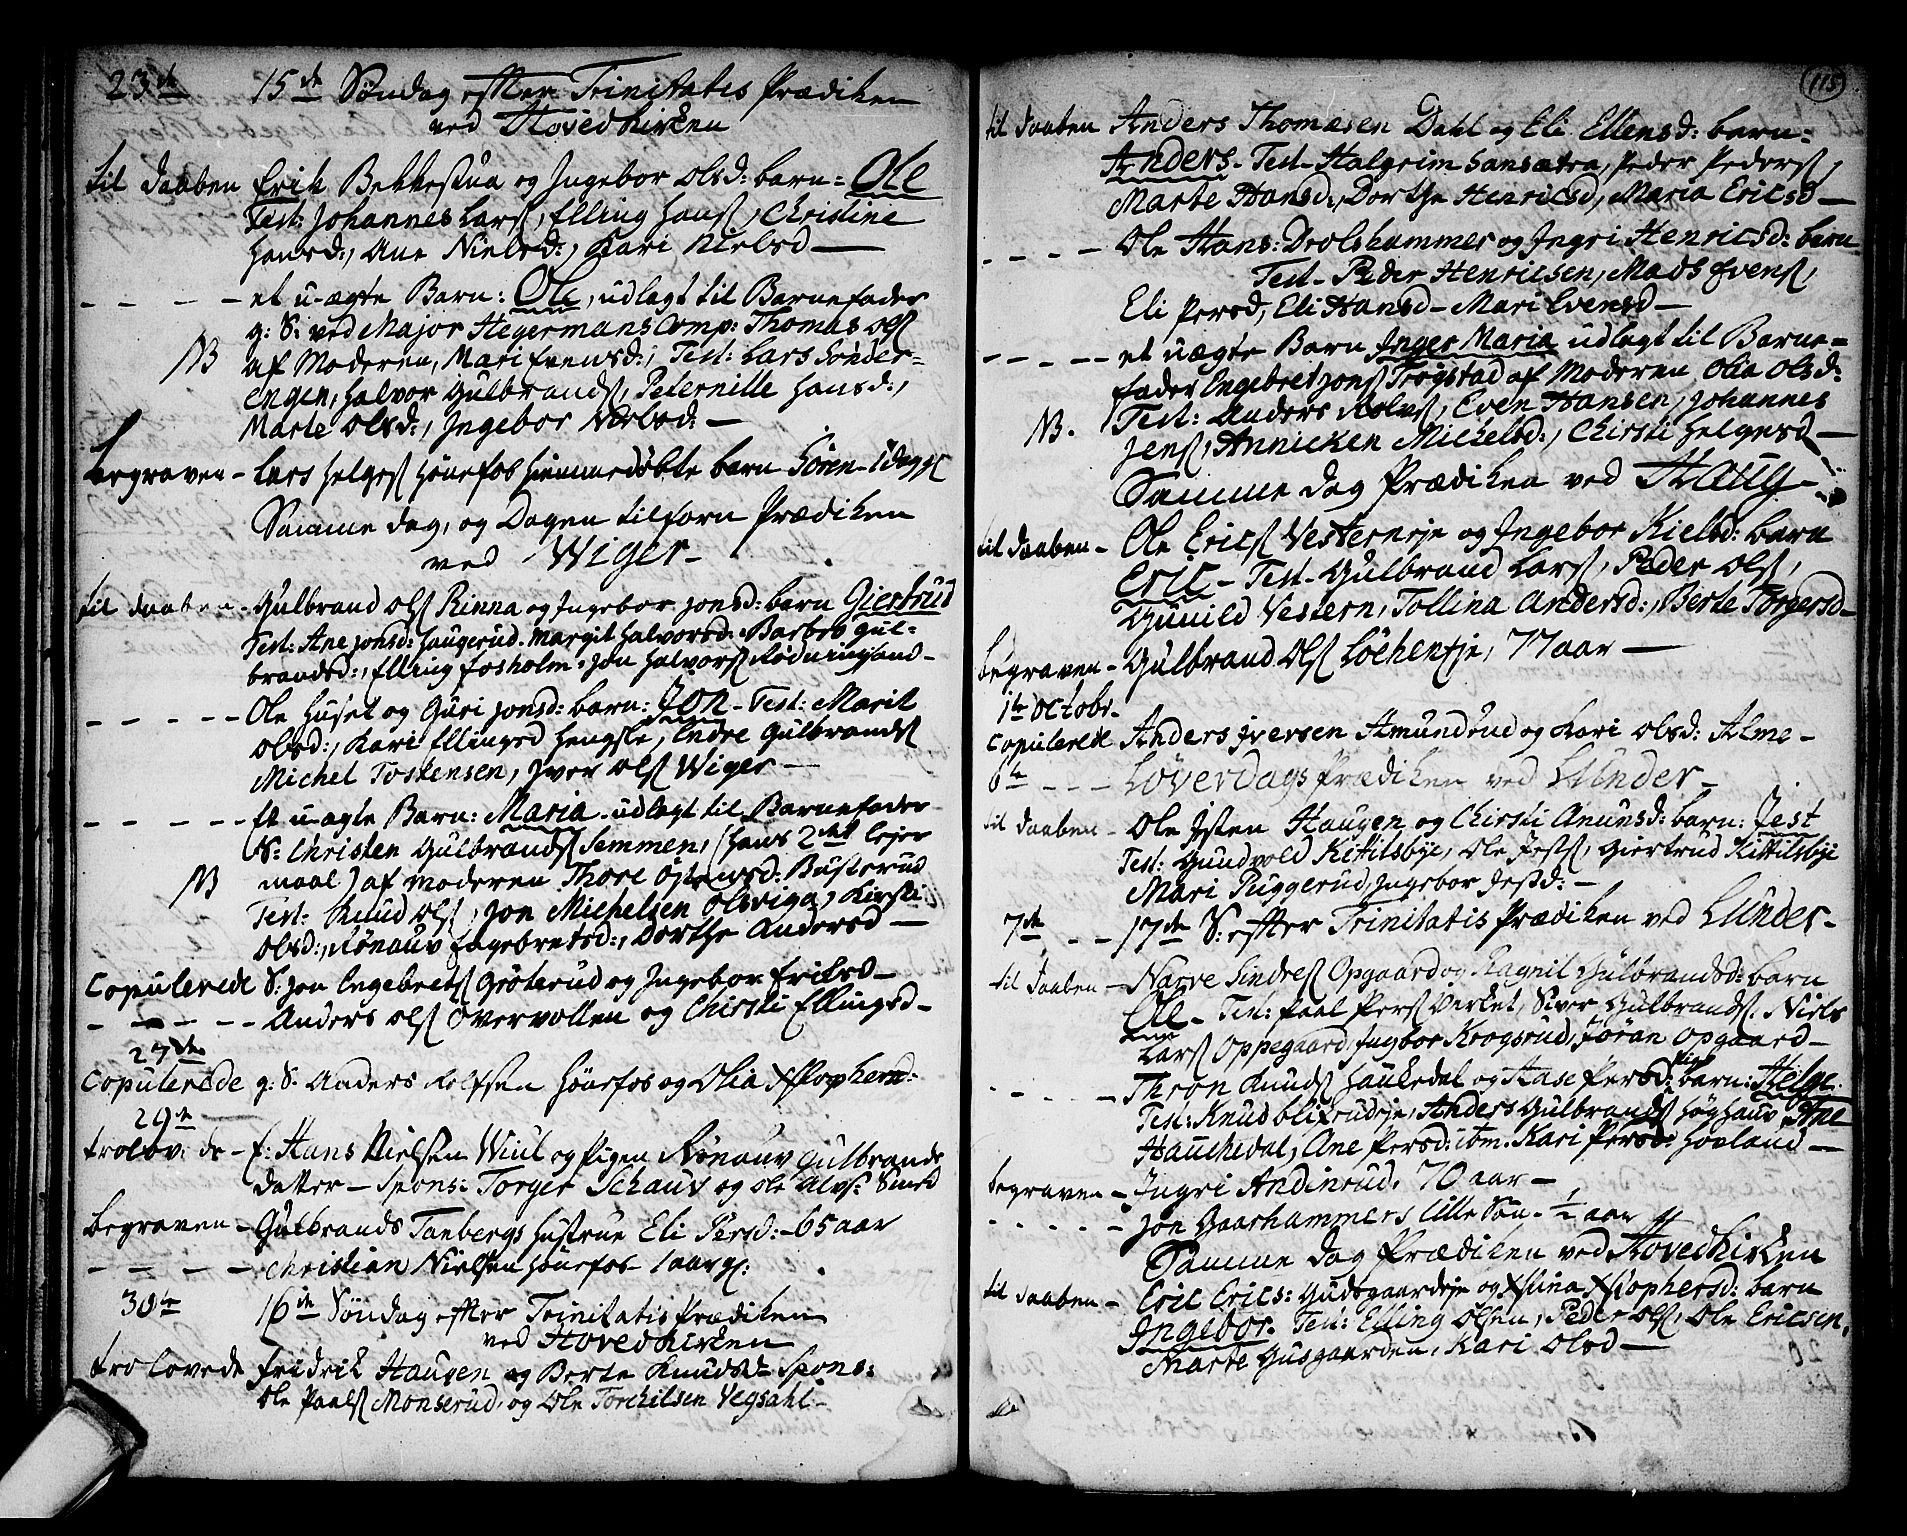 23de 15de Søndag efter Trinitatis Prædiken
ved Hovedkirken
til daaben Erik Bekkestua og Ingebor Olsd: barn: Ole
Test: Johannes Lars, Elling Hans, Christine
Hansd:, Ane Nielsd:, Kari Nielsd —
- - - - et u-ægte Barn: Ole, udlagt til Barnefader
g: S: ved Major Hegermans Comp: Thomas Ols
NB af Moderen, Mari Evensd:, Test: Lars Sønder-
engen, Halvor Gulbrands, Peternille Hansd:,
Marte Olsd:, Ingebor Nielsd: —
begraven - Lars Helges Hønefos hiemmedøbte barn Søren - 1 dag g:
Samme dag, og Dagen tilforn Prædiken
ved Wiger -
til daaben - Gulbrand Ols Rinna og Ingebor Jonsd: barn Giertrud
Test: Ane Jonsd: Haugerud. Margit Halvorsd: Barbro Gul-
brandsd:, Elling Fosholm, Jon Halvors Rødningsand -
- - - - Ole Huset og Guri Jonsd: barn: Jon - Test: Marit
Olsd:, Kari Ellingsd Hengsle, Endre Gulbrands
Michel Torkensen, Iver Ols Wiger -
- - - - Et u-ægte Barn: Maria udlagt til Barnefader
S: Christen Gulbrands Semmen, (hans 2det lejer
NB maal) af moderen Thore Østensd: Busterud
Test: Knud Ols, Jon Michelsen Olsviga, Kirsti
Olsd:, Rønauv Engebretsd:, Dorthe Andersd —
Copulerede S: Jon Engebrets Grøterud og Ingebor Eriksd -
- - - - Anders Ols Overvollen og Chirsti Ellingsd -
27de
Copulerede g: S: Anders Hønefos og Olia Xstophersd:
29de
trolovede - E: Hans Nielsen Wiul og Pigen Rønauv Gulbrands
datter - Spons: Torger Schauv og Ole Alvs: Smed
begraven - Gulbrands Tanbergs Hustrue Eli Persd: - 65 aar
- - - - Christian Nielsen Hønefos 1 aar g:
30te 16de Søndag efter Trinitatis Prædiken
ved Hovedkirken
trolovede Fridrik Haugen og Berte Knudsd - Spons:
Ole Paals Monserud, og Ole Torchilsen Vegsahl -
115
til daaben Anders Thomæsen Dahl og Eli Ellensd: barn:
Anders - Test - Halgrim Sansætra, Peder Peders,
Marte Hansd:, Dorthe Henricsd, Maria Ericsd -
- - - - Ole Hans: Drolshammer og Ingri Henricsd: barn
Test - Peder Henricsen, Mads Evens,
Eli Persd, Eli Hansd - Mari Evensd -
- - - - et uægte Barn Inger Maria udlagt til Barne-
fader Engebret Jons Trøgstad af Moderen Olia Olsd:
NB. Test: Anders Rolvs, Even Hansen, Johannes
Jens, Annicken Michelsd:, Chirsti Helgesd -
Samme dag Prædiken ved Haug -
til daaben - Ole Erics Vesterneje og Ingebor Kielsd: barn
Eric - Test - Gulbrand Lars, Peder Ols,
Gunild Vestern, Tollina Andersd:, Berte Torgersd -
begraven - Gulbrand Ols Løehentje, 77 aar —
1te Octobr.
Copulerede Anders Iversen Amundrud og Kari Olsd: Alme -
6te - - - Løverdags Prædiken ved Lunder -
til daaben - Ole Isten Haugen og Chirsti Anunsd: barn: Jest
Test: Gundvold Kittilsbye, Ole Jests, Giertrud Kittilsbye
Mari Puggerud, Ingebor Jestsd: -
7de - - 17de S: efter Trinitatis Prædiken ved Lunder -
til daaben - Narve Sindres Opgaard og Ragnil Gulbrandsd: barn
Ole - Test: Paal Pers Verket, Siver Gulbrands, Niels
Lars Oppegaard, Ingbor Krogsrud, Jøran Opgaard -
- - - - Thron Knuds Haukedal og Aase Persd: barn: Helge
Test: Knud Anders Gulbrands Høghauv Ane
Hauchedal, Ane Persd: itm. Kari Persd: Hovland -
begraven - Ingri Andinrud, 70 aar -
- - - - Jon Gaarhammers lille Søn - 1/2 aar g:
Samme dag Prædiken ved Hovedkirken
til daaben - Eric Erics: Gudsgaardeje og Xstina Xstophersd: barn
Ingebor. Test: Elling Olsen, Peder Ols, Ole Ericsen,
Marte Gusgaarden, Kari Olsd —